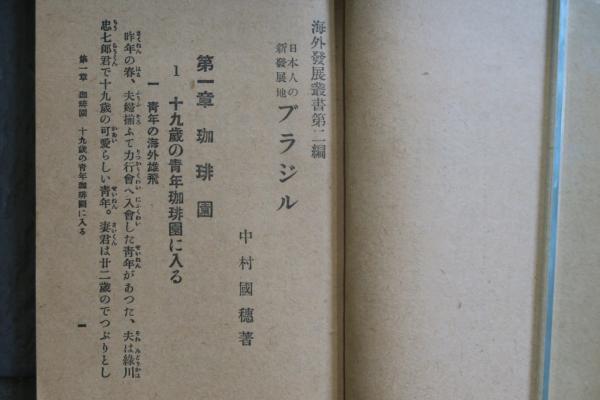 海外發展叢書第二編
日本人の
新發展地
ブラジル
中村國穗著
第一章 珈琲園
1 十九歲の靑年珈琲園に入る
一 靑年の海外雄飛
昨年の春、夫婦揃ふて力行會へ入會した靑年があつた、夫は綠川
忠七郞君で十九歲の可愛らしい靑年。妻君は廿二歲のでつぷりとし
第一章 珈琲園 十九歲の靑年珈琲園に入る
一